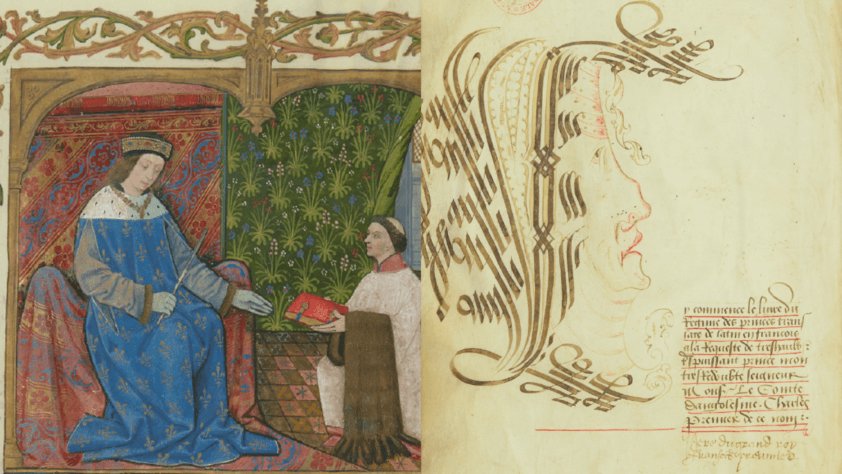 y commence le livre du
Regime des princes trans
late de latin en francois
a la Requeste de treshault
et puissant prince mon
tresredubte seigneur
Mons. Le Conte
dangolesme. Charles
premier de ce nom:
pere du grand roy
francois premier